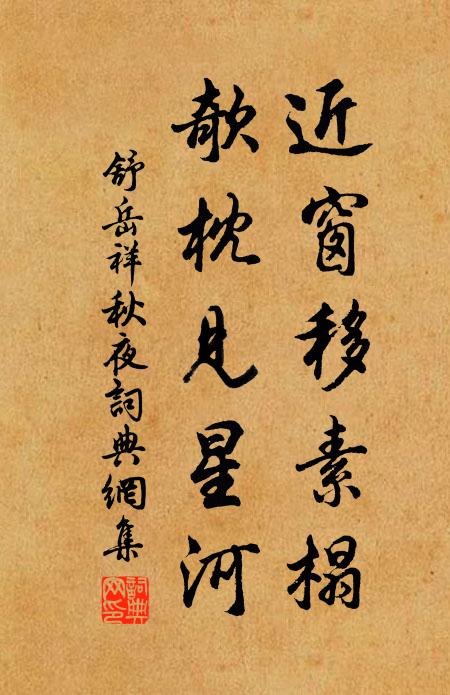 近窗移素榻
欹枕見星河
舒岳祥秋夜詞典網集
詞典網印